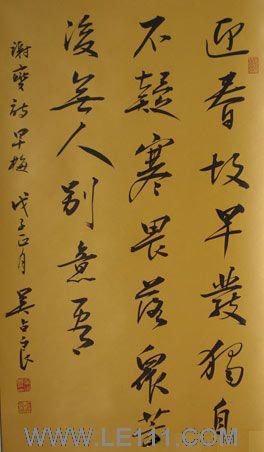 迎春故早發獨自
不疑寒畏落衆花
後無人别意看
謝燮詩早梅 戊子正月 吴占良
WWW.LE111.COM